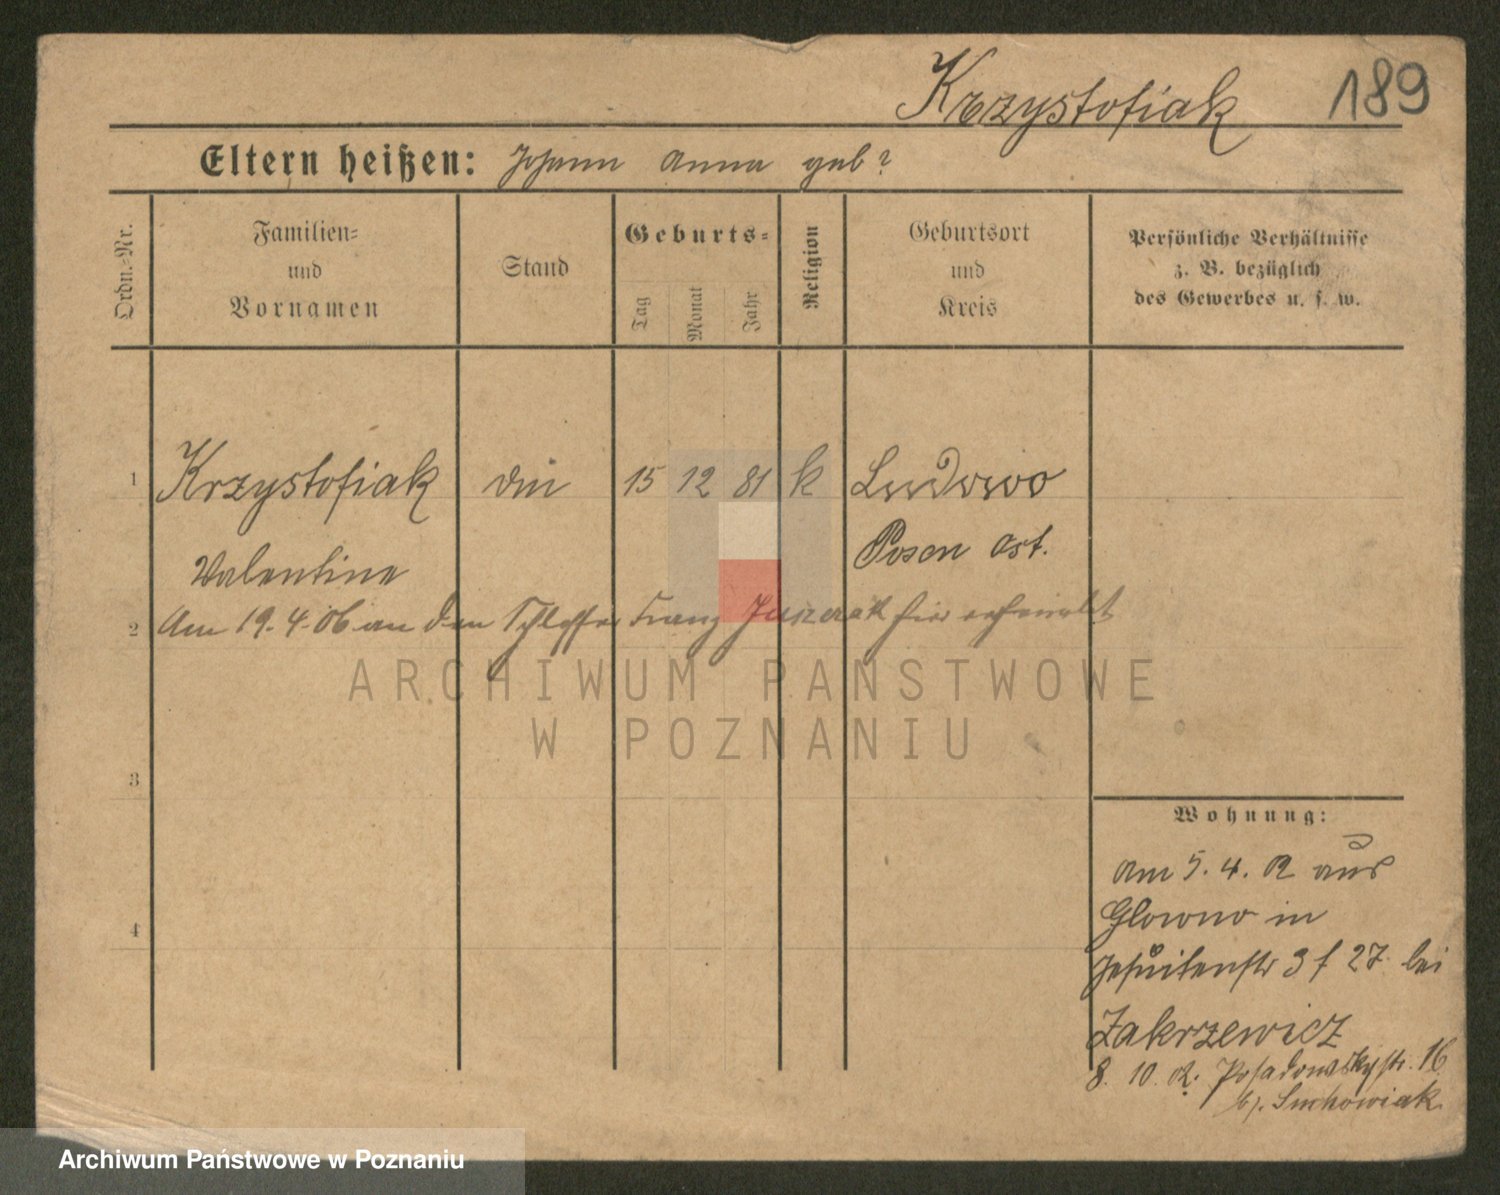 Krzystofiak 189
Eltern heißen: Johann Anna geb?
Ordn.-Nr.
Familien-
und
Vornamen
Stand
Geburts-
Tag
Monat
Jahr
Religion
Geburtsort
und
Kreis
Persönliche Verhältnisse
z. B. bezüglich
des Gewerbes u. s. w.
1 Krzystofiak 15 12 81 k Ludowo
Valentine Posen Ost.
2 Am 19.4.06 an den Schlosser Franz hier verheiratet
ARCHIWUM PAŃSTWOWE
W POZNANIU
3
Wohnung:
am 5.4.02 aus
4 Glowno in
Jesuitenstr 3 f 27. bei
Zakrzewicz
8.10.02. Posadowskystr. 16
bj. Suchowiak
Archiwum Państwowe w Poznaniu